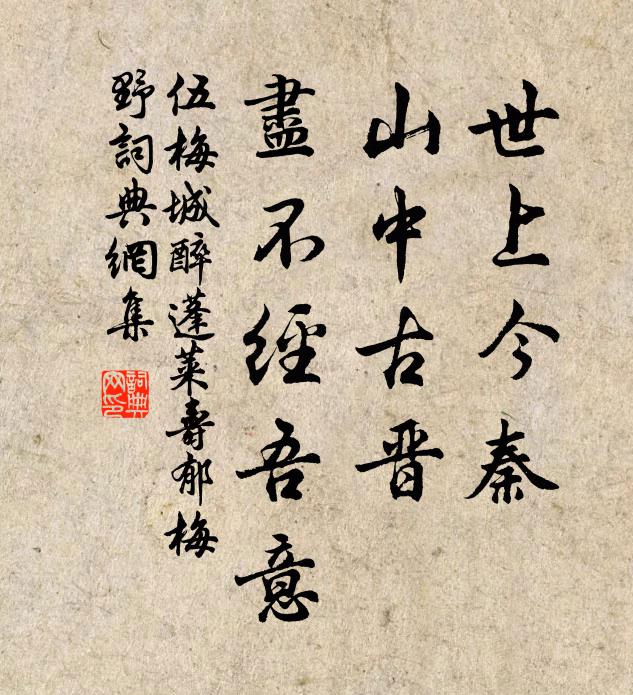 世上今秦
山中古晋
盡不經吾意
伍梅城醉蓬萊壽郁梅
野詞典網集
詞典网印